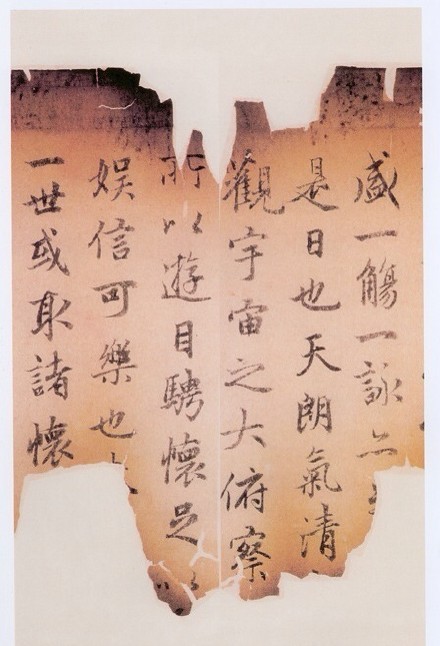 盛一觴一詠亦
是日也天朗氣清
觀宇宙之大俯察
所以遊目騁懷足以
娛信可樂也
一世或取諸懷